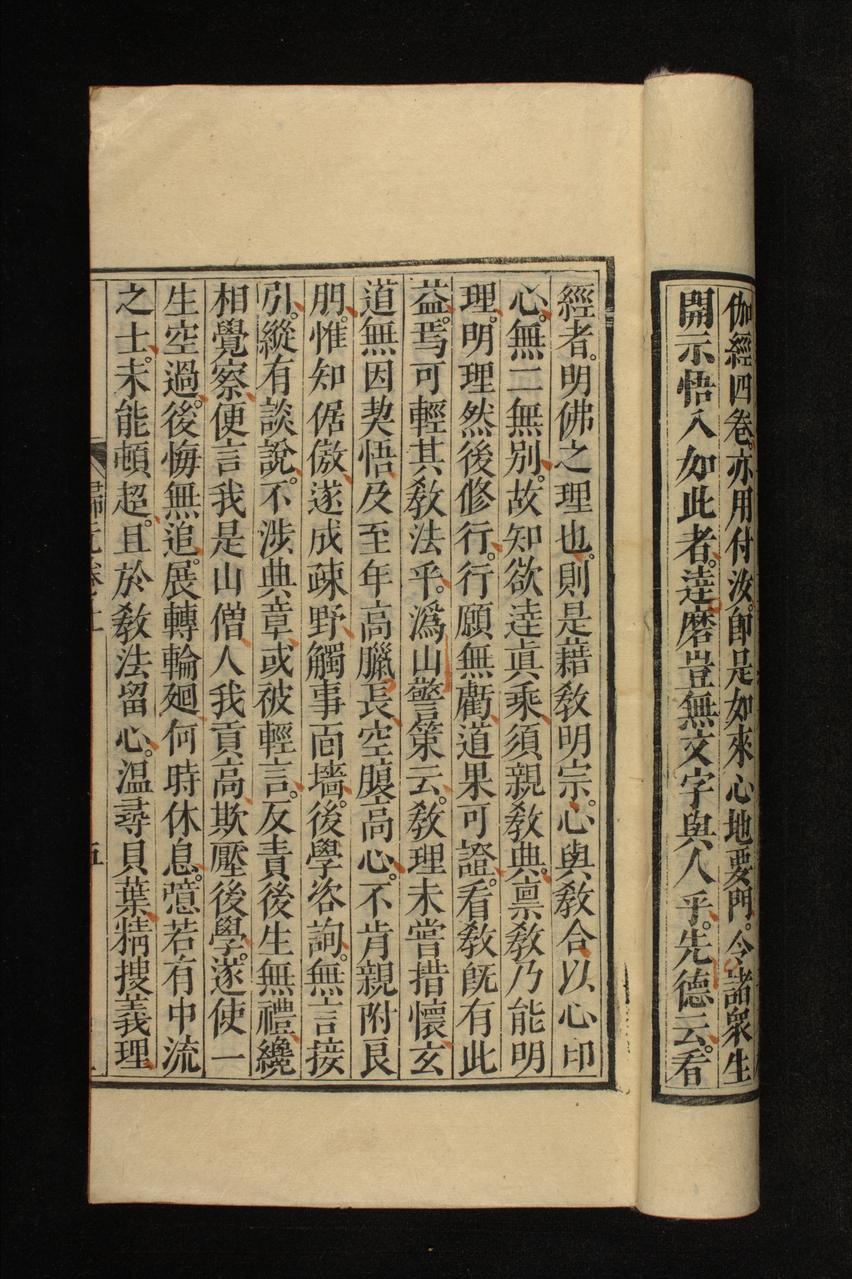 伽經四卷。亦用付汝。卽是如來心地要門。令諸衆生
開示悟入如此者。達磨豈無文字與人乎。先德云。看
經者。明佛之理也。則是藉敎明宗。心與敎合。以心印
心。無二無別。故知欲達眞乘。須親敎典。禀敎乃能明
理。明理然後修行。行願無虧。道果可證。看敎旣有此
益。焉可輕其敎法乎。潙山警策云。敎理未嘗措懷。玄
道無因契悟。及至年高臘長。空腹高心。不肯親附良
朋。惟知倨傲。遂成疎野。觸事面墻。後學咨詢。無言接
引。縱有談說。不涉典章。或被輕言。反責後生無禮。纔
相覺察。便言我是山僧。人我貢高。欺壓後學。遂使一
生空過。後悔無追。展轉輪廻。何時休息。噫。若有中流
之士。未能頓超。且於敎法留心。温尋貝葉。精搜義理
歸元卷上
五